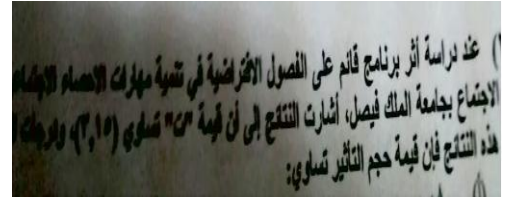 ) عند دراسة أثر برنامج قائم على الفصول الافتراضية في تنمية مهارات الاحصاء
الاجتماع بجامعة الملك فيصل، أشارت النتائج إلى أن قيمة "ت" تساوي (٣,١٥)، ودرجات
هذه النتائج فإن قيمة حجم التأثير تساوي: